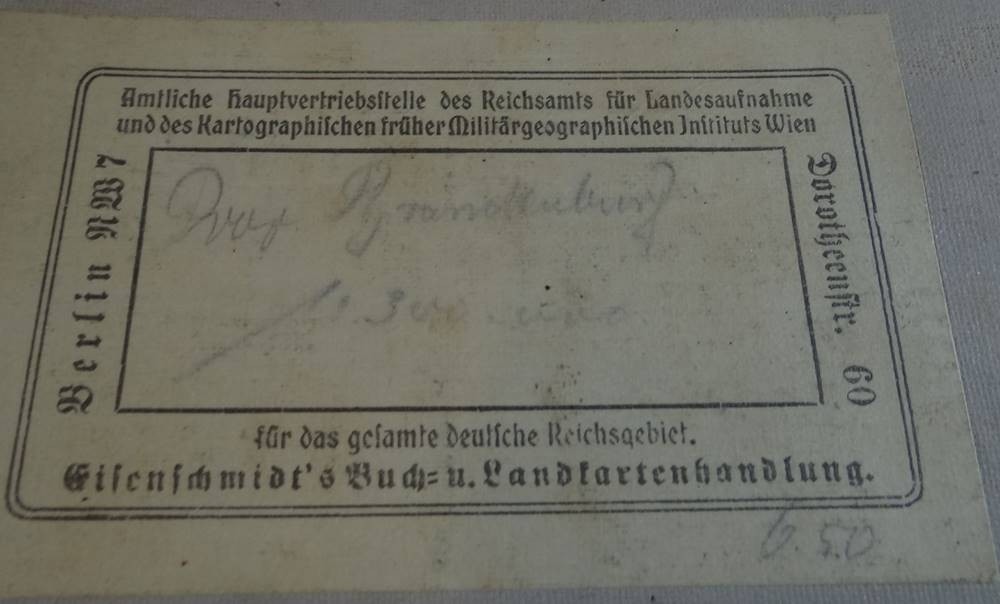 Amtliche Hauptvertriebsſtelle des Reichsamts für Landesaufnahme
und des Kartographiſchen früher Militärgeographiſchen Inſtituts Wien
Berlin NW 7
Prov Brandenburg
1:300
Dorotheenſtr. 60
für das geſamte deutſche Reichsgebiet.
Eiſenſchmidt's Buch= u. Landkartenhandlung.
6.50